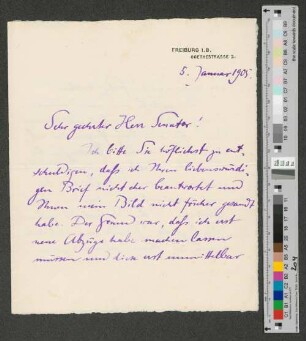 FREIBURG I. B.
GOETHESTRASSE 3.
5. Januar 1905
Sehr geehrter Herr Senator!
Ich bitte Sie höflichst zu ent-
schuldigen, dass ich Ihren liebenswürdi-
gen Brief nicht eher beantwortet und
Ihnen mein Bild nicht früher gesandt
habe. Der Grund war, dass ich erst
neue Abzüge habe machen lassen
müssen und diese erst unmittelbar